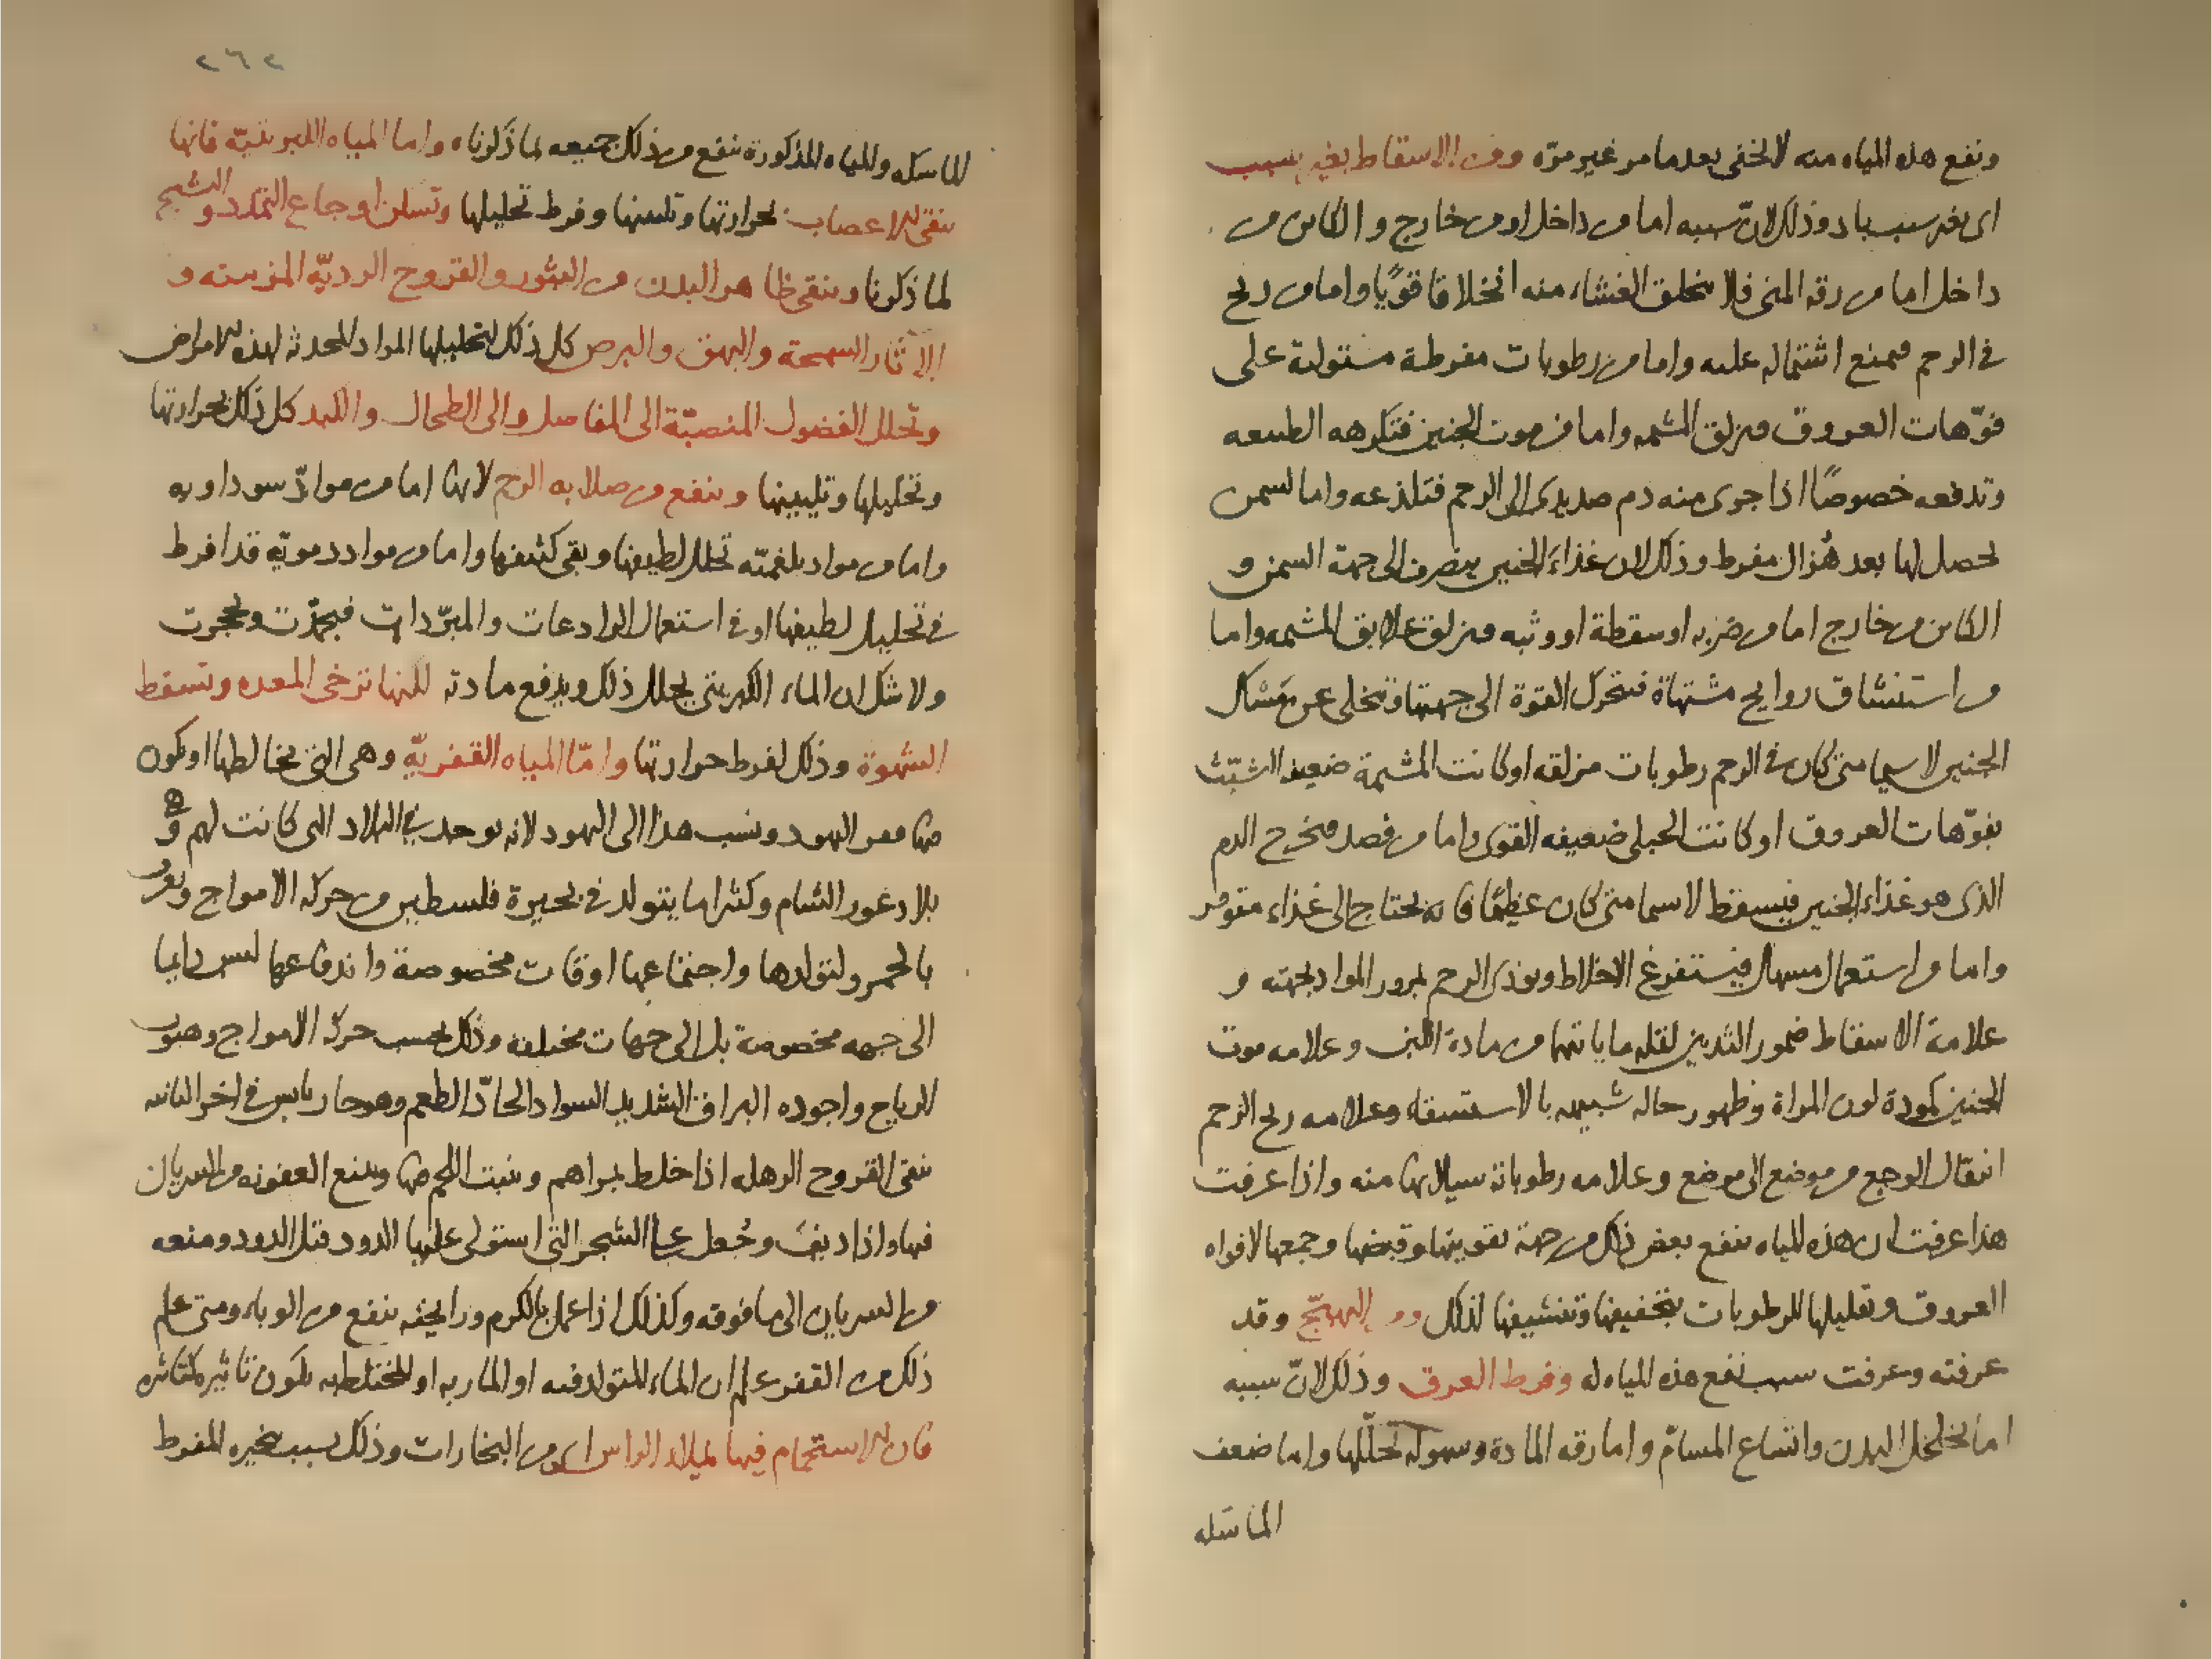 ونفع هذه المياه منه لا يخفى بعد ما مر غير مرّه ومن الاسقاط بغير سبب
اى بغير سبب باد وذلك لانّ سببه اما من داخل او من خارج والكاين من
داخل اما من رقه المنى فلا يتخلق الغشاء منه انخلاقا قويًا واما من ريح
فى الرحم فيمنع اشتماله عليه واما من رطوبات مفرطة مستولية على
فوّهات العروق فيزلق المشيمه واما من موت الجنين فتكرهه الطبيعه
وتدفعه خصوصًا اذا جرى منه دم صديدى الى الرحم فتلذعه واما لسمن
يحصل لها بعد هُزال مفرط وذلك لان غذاء الجنين ينصرف الى جهة السمن و
الكاين من خارج اما من ضربه او سقطة او وثبه فيزلق علايق المشيمه واما
من استنشاق روايح مشتهاة فتحرك القوة الى جهتها فتخلى عن مَسْاك
الجنين لا سيما متى كان فى الرحم رطوبات مزلقه او كانت المشيمة ضعيفه التشبّث
بفوّهات العروق او كانت الحبلى ضعيفه القوى واما من فصد فيخرج الدم
الذى هو غذاء الجنين فيسقط لا سيما متى كان عظيمًا فانه يحتاج الى غذاء متوفر
واما من استعمال مسهل فيستفرغ الاخلاط ويوذى الرحم بمرور المواد بجهته و
علامة الاسقاط ضمور الثديين لقله ما ياتيهما من مادة اللبن وعلامه موت
الجنين كمودة لون المراة وظهور حاله شبيهه بالاستسقاء وعلامه ريح الرحم
انتقال الوجع من موضع الى موضع وعلامه رطوباته سيلانها منه واذا عرفت
هذا عرفت ان هذه المياه تنفع بعض ذلك من جهة تقويتها وقبضها وجمعها لافواه
العروق وتقليلها للرطوبات بتجفيفها وتنشيفها لذلك ومن التهيّج وقد
عرفته وعرفت سبب نفع هذه المياه له وفرط العرق وذلك لانّ سببه
اما تخلخل البدن واتساع المسامّ واما رقه المادة وسهوله تحلّلها واما ضعف
الماسكه
٢٦٢
الماسكه والمياه المذكورة تنفع من ذلك جميعه لما ذكرناه واما المياه الكبريتيّه فانها
تنقى الاعصاب لحرارتها وتليينها وفرط تحليلها وتسكن اوجاع التمدد والتشنج
لما ذكرنا وتنقى ظاهر البدن من البثور والقروح الرديّه المزمنه و
الآثار السمجة والبهق والبرص كل ذلك لتحليلها المواد المحدثه لهذه الامراض
وتحلل الفضول المنصبّة الى المفاصل والى الطحال والكبد كل ذلك لحرارتها
وتحليلها وتليينها وتنفع من صلابه الرحم لانها اما من موادّ سوداويه
واما من مواد بلغميّه تحلل لطيفها وبقى كثيفها واما من مواد دمويّه قد افرط
فى تحليل لطيفها او فى استعمال الرادعات والمبرّدات فجمدت وتحجرت
ولا شك ان الماء الكبريتى يحلل ذلك ويدفع مادته لكنها ترخى المعده وتسقط
الشهوة وذلك لفرط حرارتها وامّا المياه القفريّه وهى التى يخالطها او يكون
فيها قفر اليهود ونسب هذا الى اليهود لانه يوجد فى البلاد التى كانت لهم
بلاد غور الشام وكثيرا ما يتولد فى بحيرة فلسطين من حركه الامواج
بالحمر ولتولدها واجتماعها اوقات مخصوصة واندفاعها ليس دايما
الى جهه مخصوصة بل الى جهات مختلفه وذلك بحسب حركه الامواج وهبوب
الرياح واجوده البراق الشديد السواد الحادّ الطعم وهو حار يابس فى اخر الثانيه
ينقى القروح الرهله اذا خلط بمراهم وينبت اللحم فيها ويمنع العفونه من السريان
فيها واذا ديف وجُعل على الشجر التى استولى عليها الدود قتل الدود ومنعه
من السريان الى ما فوقه وكذلك اذا عمل بالكرم ورايحته تنفع من الوباء ومتى علم
ذلك من القفر علم ان الماء المتولد فيه او المار به او المختلط به يكون تاثيره كتاثيره
فان الاستحمام فيها يملا الراس اى من البخارات وذلك بسبب تبخيره المفرط